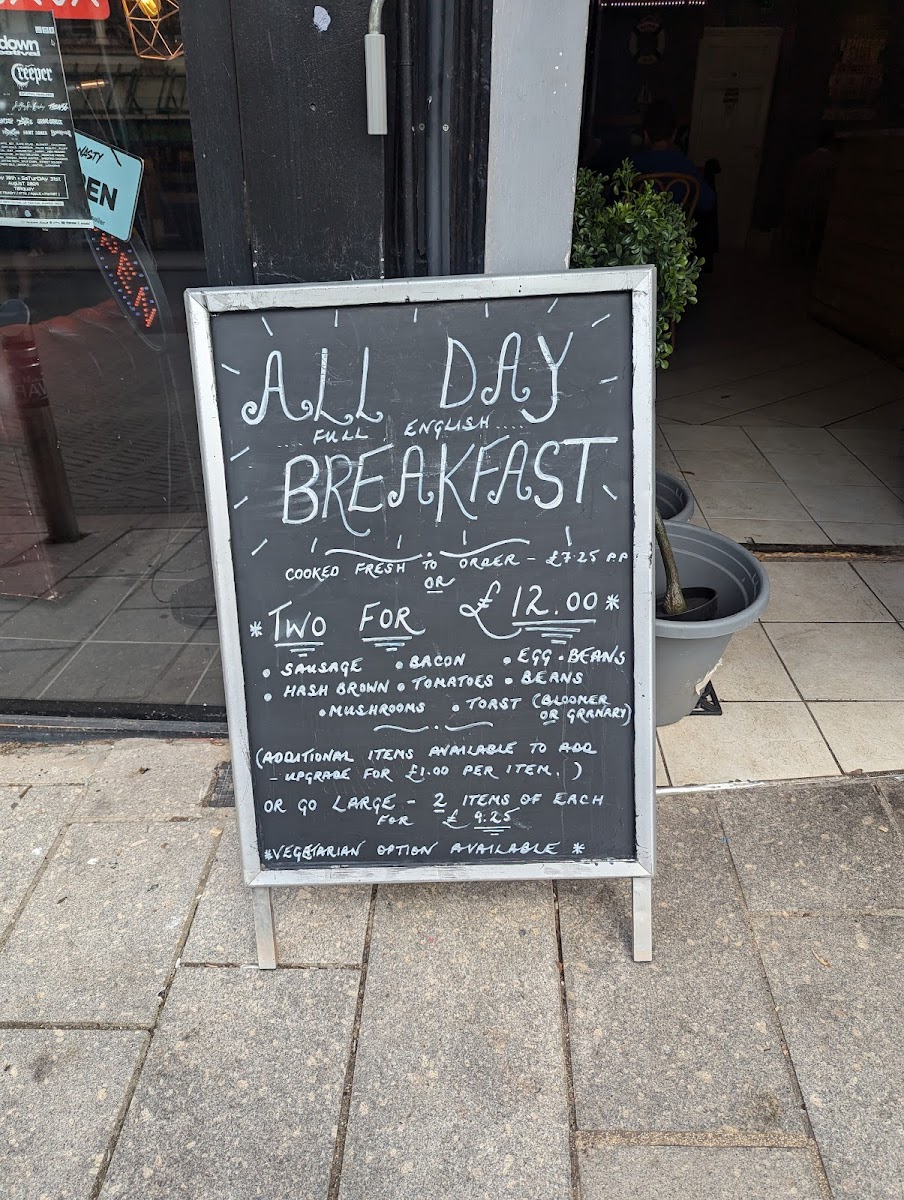 down
Creeper
August 2024
TORQUAY
NASTY
EN
ALL DAY
.... FULL ENGLISH ....
BREAKFAST
COOKED FRESH TO ORDER - £7.25 P.P
OR
* TWO FOR £12.00 *
• SAUSAGE • BACON • EGG • BEANS
• HASH BROWN • TOMATOES • BEANS
• MUSHROOMS • TOAST (BLOOMER
OR GRANARY)
(ADDITIONAL ITEMS AVAILABLE TO ADD
- UPGRADE FOR £1.00 PER ITEM.)
OR GO LARGE - 2 ITEMS OF EACH
FOR £9.25
*VEGETARIAN OPTION AVAILABLE *